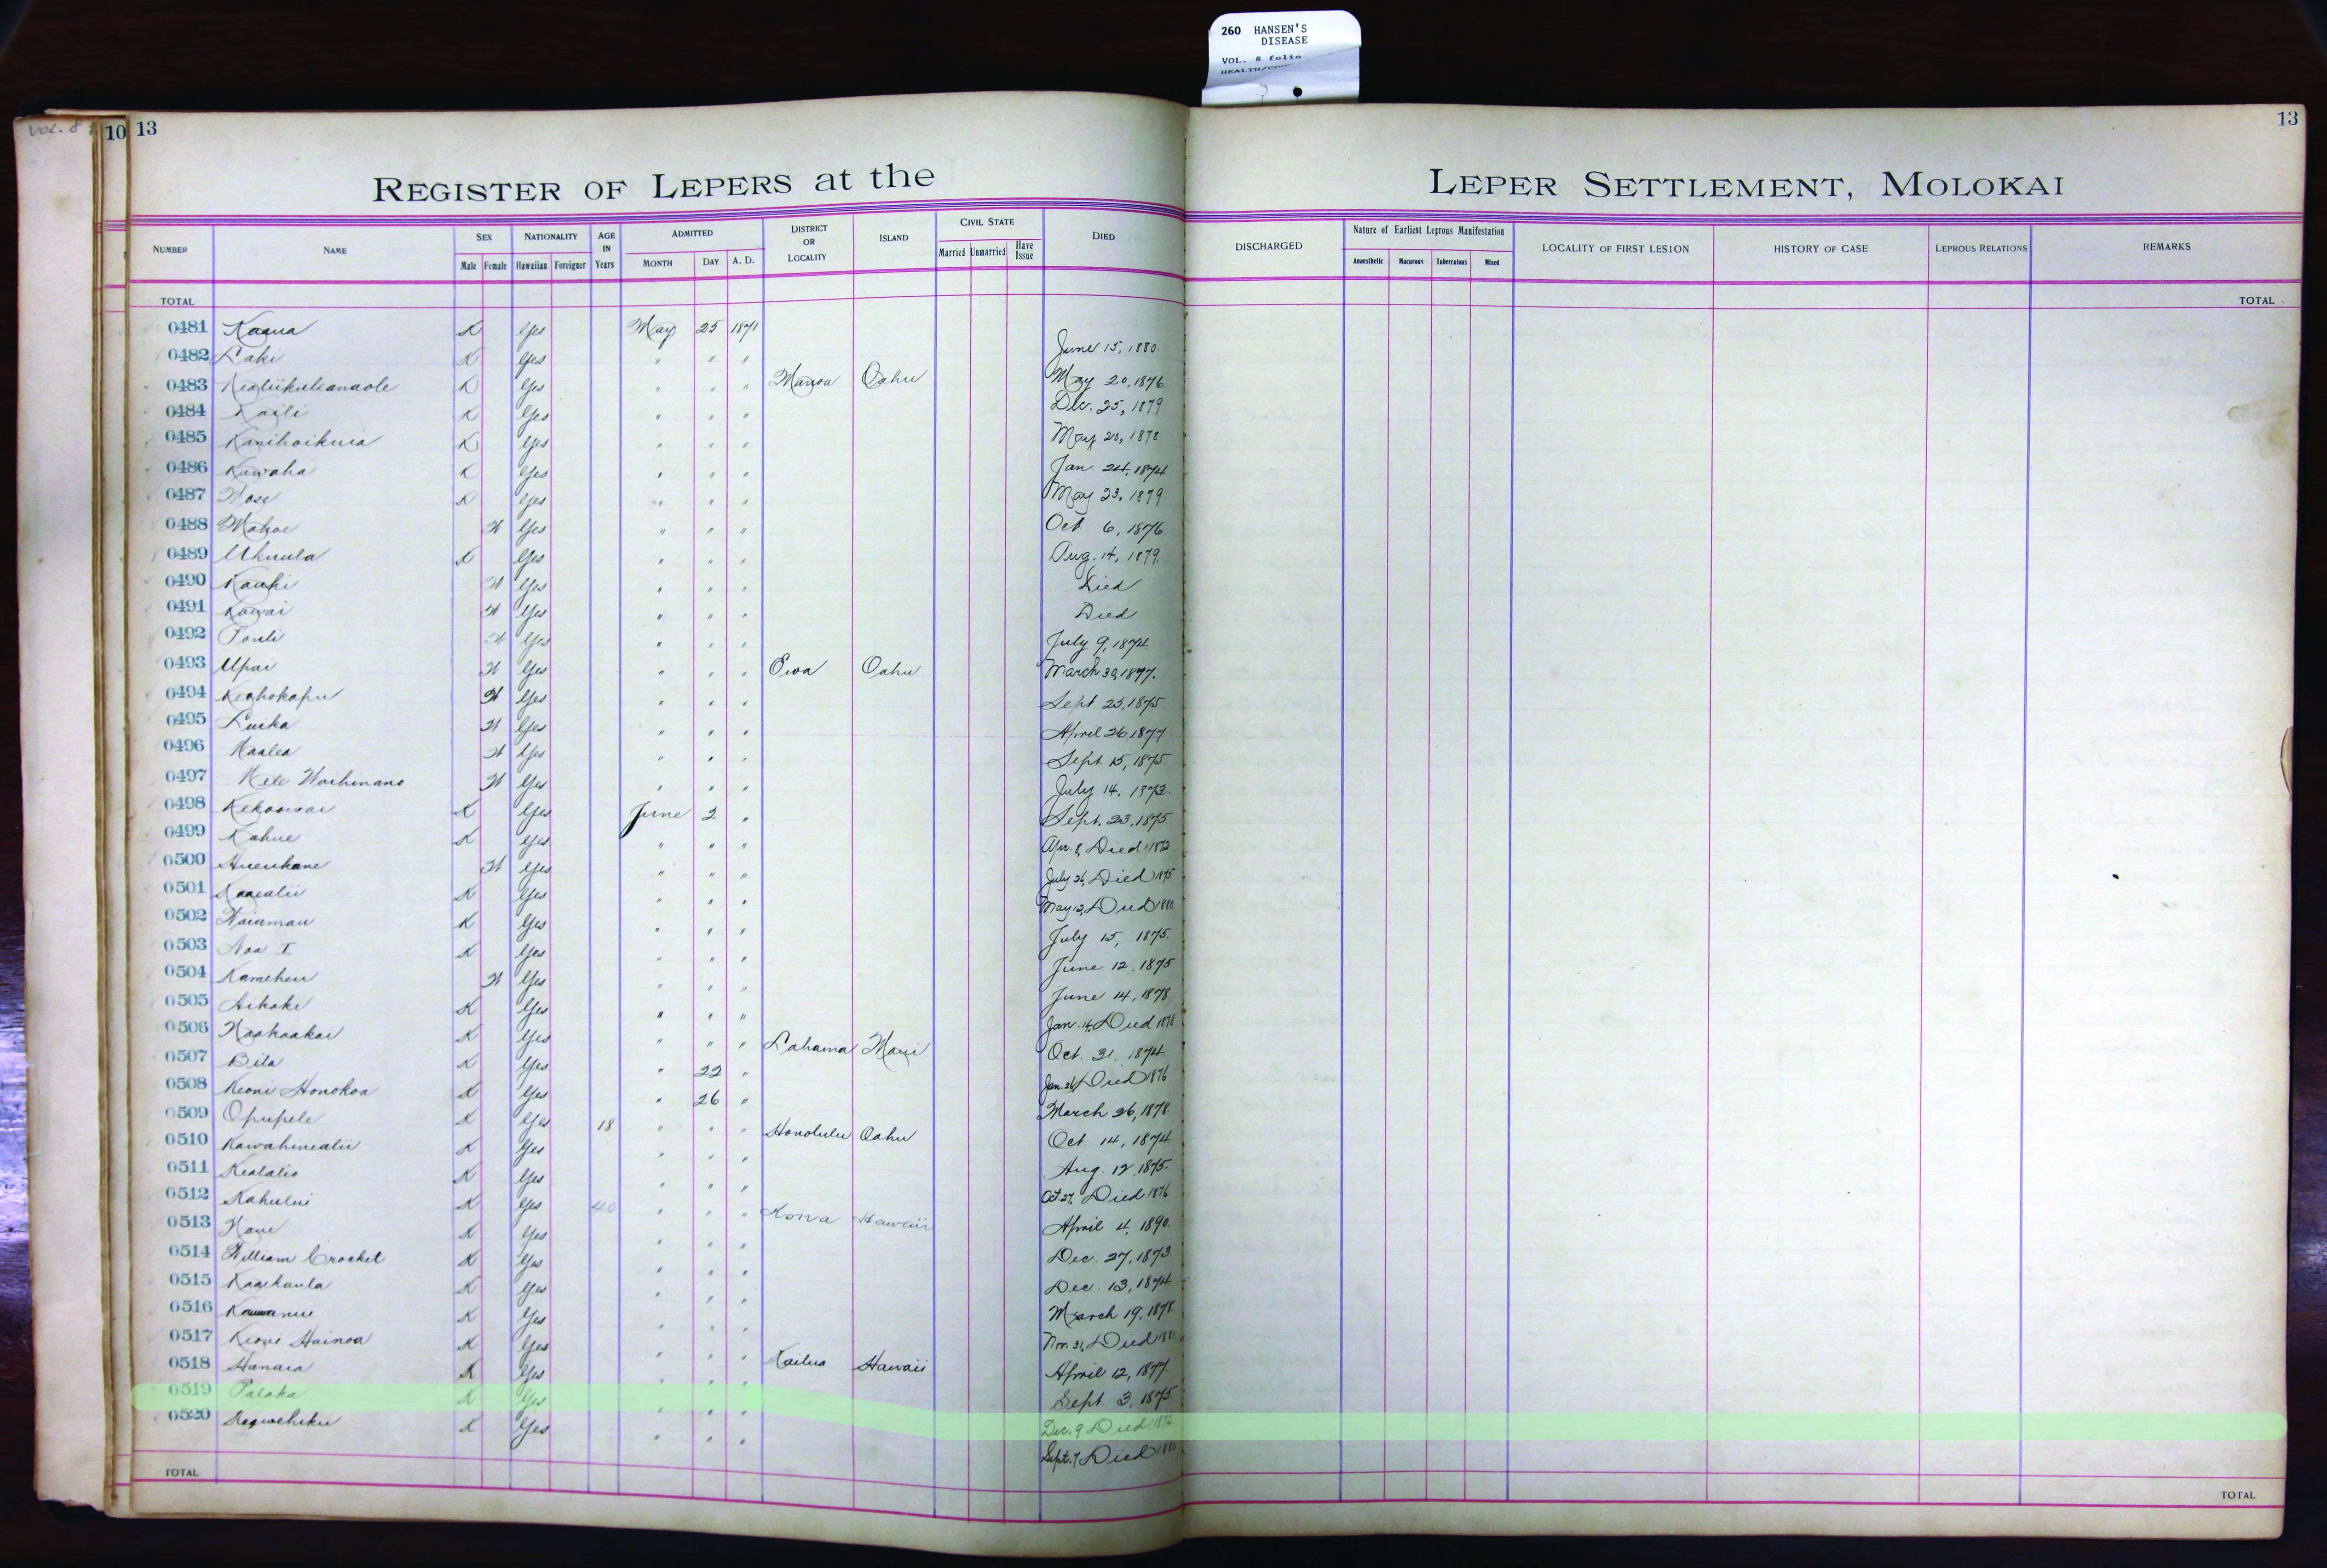 260 HANSEN'S
DISEASE
VOL. 8 folio
VOL. 8
10 13
13
REGISTER OF LEPERS at the LEPER SETTLEMENT, MOLOKAI
NUMBER NAME SEX NATIONALITY AGE IN Years ADMITTED DISTRICT OR LOCALITY ISLAND CIVIL STATE DIED DISCHARGED Nature of Earliest Leprous Manifestation LOCALITY OF FIRST LESION HISTORY OF CASE LEPROUS RELATIONS REMARKS
Male Female Hawaiian Foreigner MONTH DAY A. D. Married Unmarried Have Issue Anaesthetic Macurous Tuberculous Mixed
TOTAL TOTAL
0481 Kaaua K Yes May 25 1871
0482 Laki K Yes " " " June 15, 1880.
0483 Kealiikuleanaole K Yes " " " Manoa Oahu May 20, 1876
0484 Kaili K Yes " " " Dec. 25, 1879
0485 Kanihoikuia K Yes " " " May 20, 1878
0486 Kawaha K Yes " " " Jan. 24, 1874
0487 K Yes " " " May 23, 1879
0488 Mahoe W Yes " " " Oct 6, 1876.
0489 Ukuula K Yes " " " Aug. 14, 1879.
0490 Kauhi W Yes " " " Died
0491 Kawai W Yes " " " Died
0492 Pouli W Yes " " " July 9, 1874
0493 Upai W Yes " " " Ewa Oahu March 30, 1877.
0494 Keohokapu W Yes " " " Sept 25, 1875.
0495 Luika W Yes " " " April 26 1877
0496 Maalea W Yes " " " Sept. 15, 1875.
0497 Mele Waihinano W Yes " " " July 14, 1873.
0498 Kekoowai K Yes June 2 " Sept. 23, 1875
0499 Kahue K Yes " " " Apr. 8, Died 1872
0500 Hueukane W Yes " " " July 26, Died 1875
0501 Kaaealii K Yes " " " May 12, Died 1880
0502 Waiamau K Yes " " " July 15, 1875.
0503 Noa I K Yes " " " June 12. 1875
0504 Kameheu W Yes " " " June 14, 1878
0505 Aikake K Yes " " " Jan. 14, Died 1878
0506 Naohaakai K Yes " " " Lahaina Maui. Oct. 31, 1874
0507 Bila K Yes " 22 " Jan. 26, Died 1876
0508 Keoni Honokoa K Yes " 26 " March 26, 1878
0509 Opupele K Yes 18 " " " Honolulu Oahu Oct 14, 1874
0510 Kawahinealii K Yes " " " Aug. 12. 1875.
0511 Kealalio K Yes " " " Oct. 27, Died 1876
0512 Kahului K Yes 40 " " " Kona Hawaii April 4, 1890.
0513 K Yes " " " Dec. 27, 1873
0514 William Crocket K Yes " " " Dec. 13, 1874
0515 Kaaikaula K Yes " " " March 19, 1878
0516 K Yes " " " Nov. 31, Died
0517 Keoni Hainoa K Yes " " " Kailua Hawaii April 12, 1877.
0518 Hanaia K Yes " " " Sept. 3, 1875.
0519 Palaka K Yes " " " Dec. 9 Died 1872
0520 K Yes " " " Sept. 7, Died 1880
TOTAL TOTAL